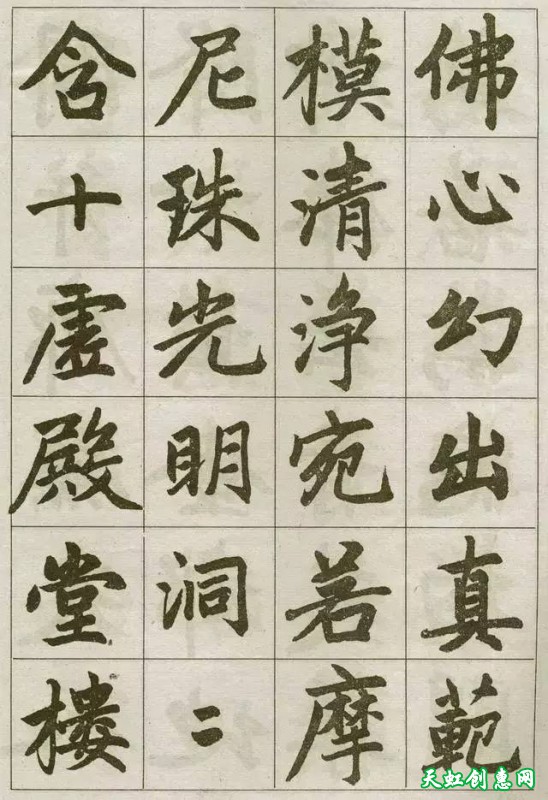 佛心幻出真範
模清浄宛若摩
尼珠光明洞二
含十虚殿堂楼
天虹创惠网